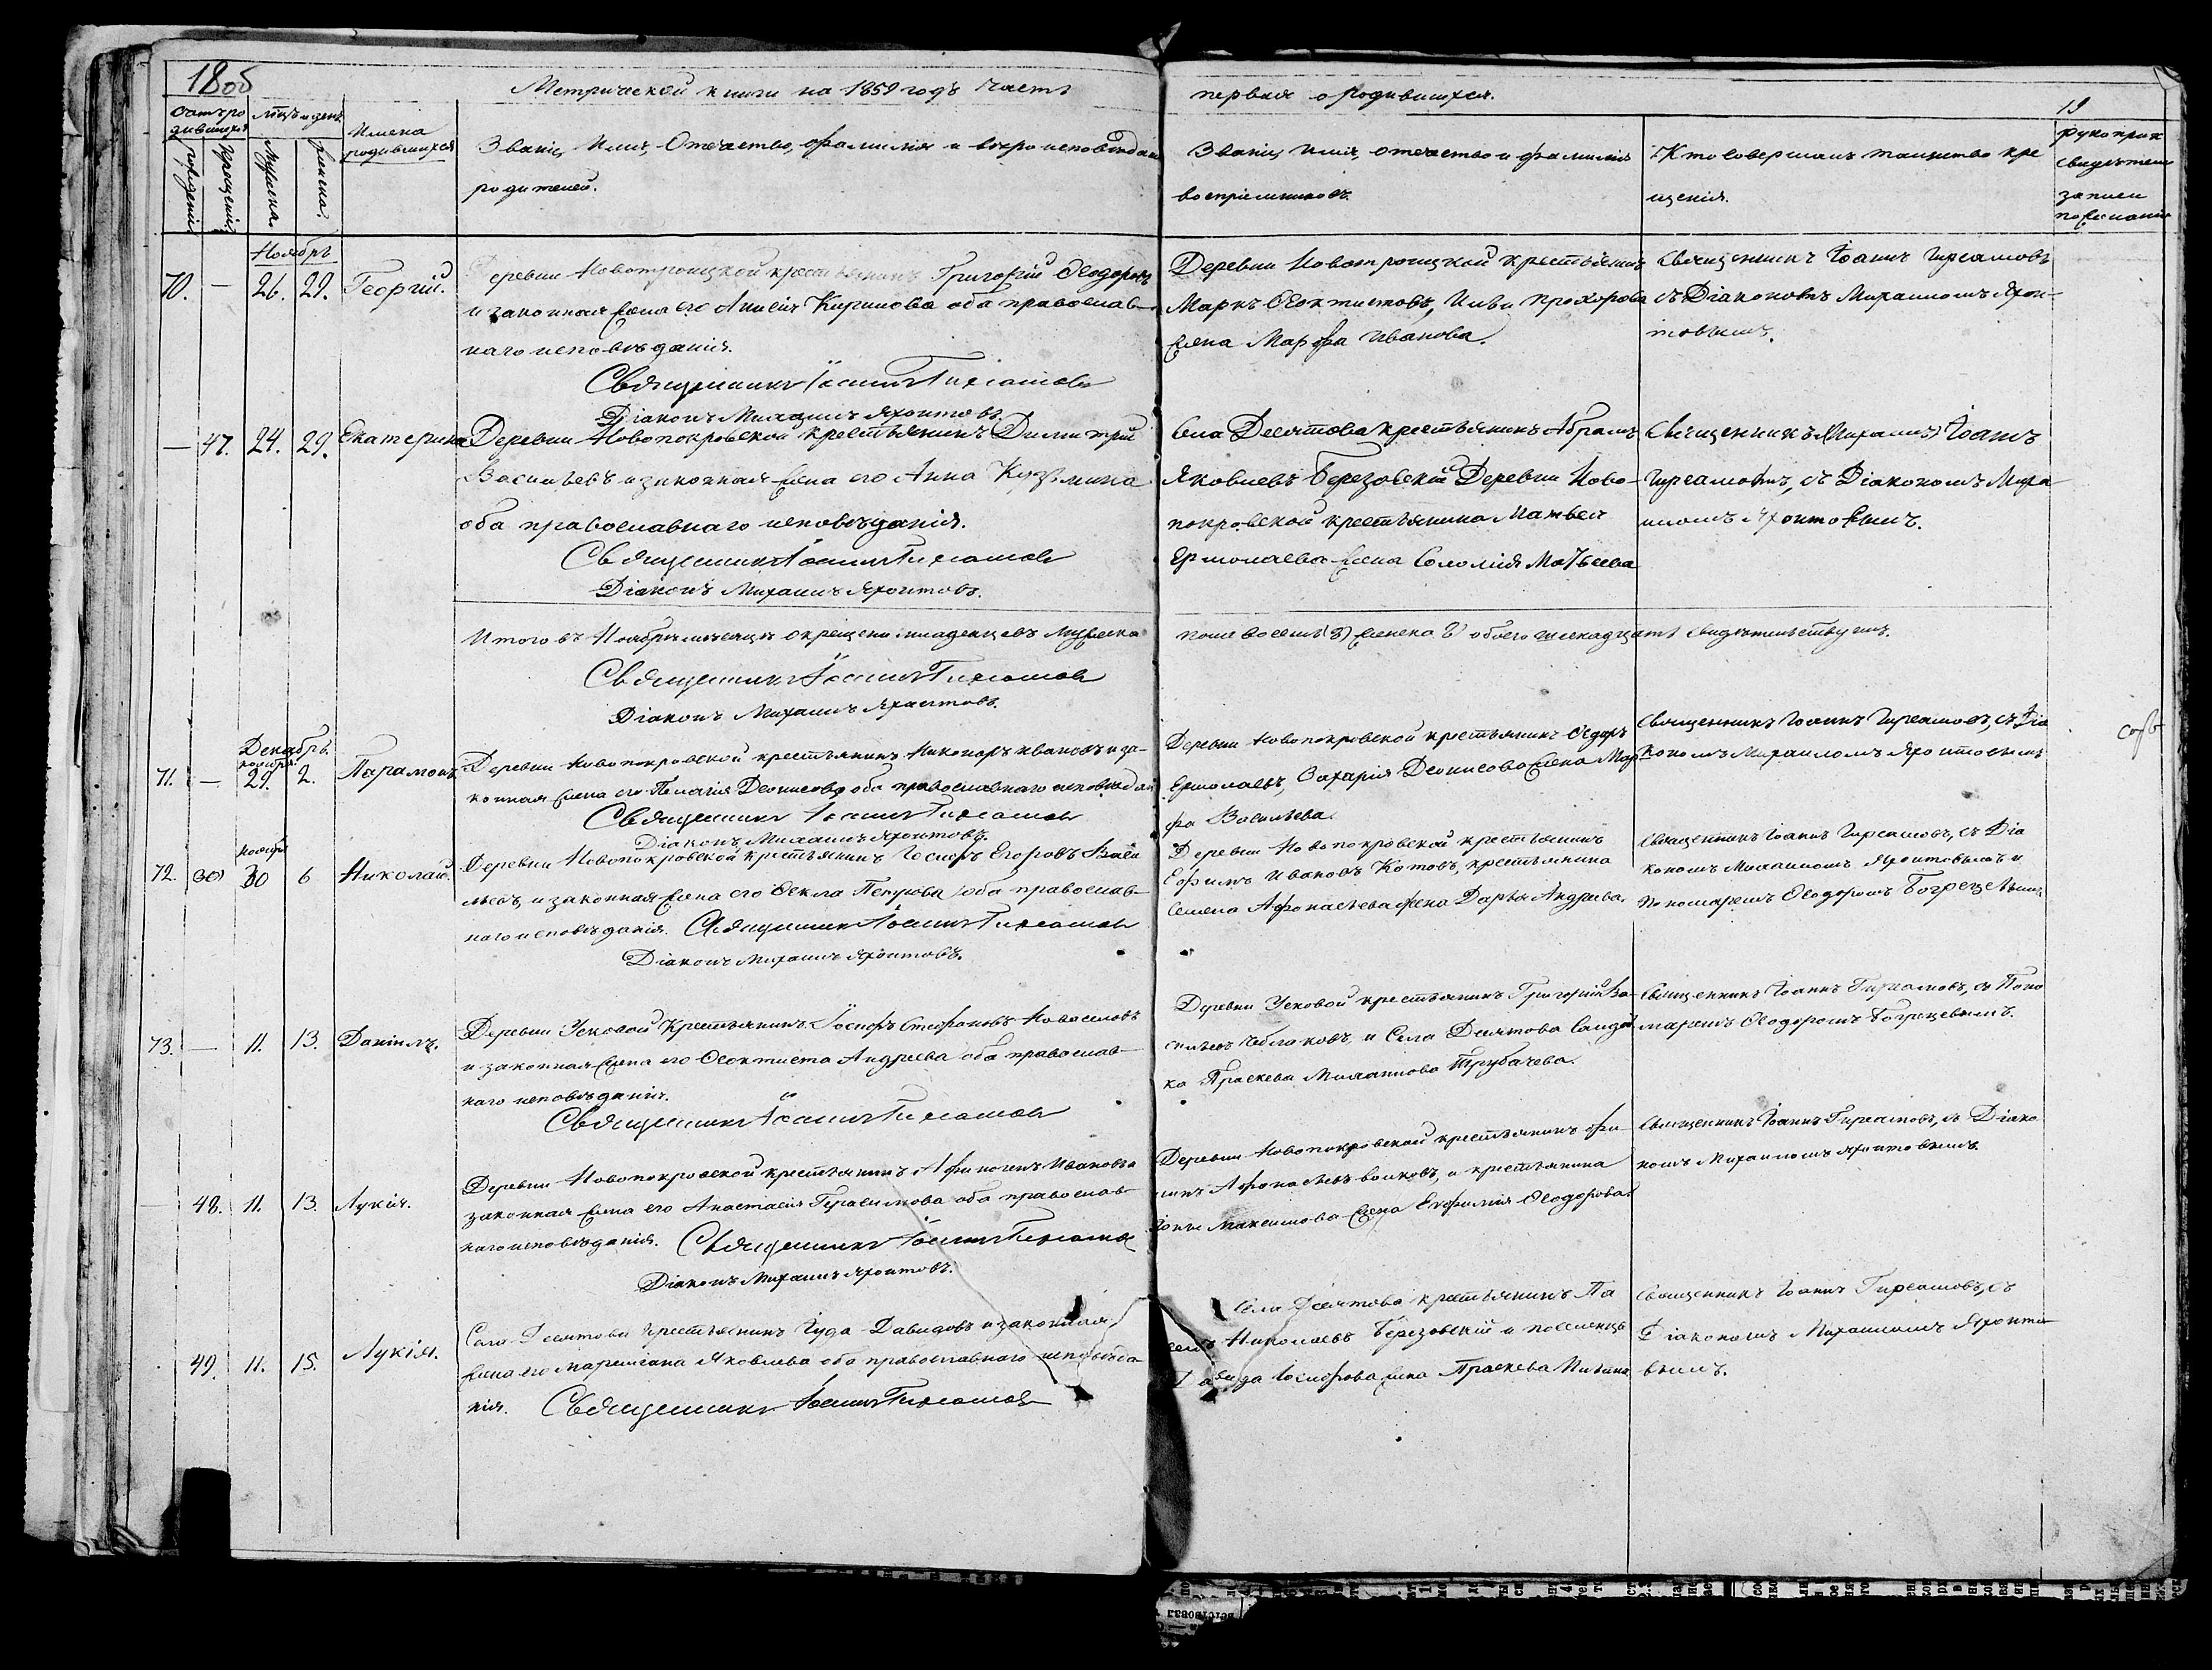 18об
Метрической книги на 1859 годъ часть
первая о Родившихся.
19
Счетъ родившихся
мѣсяцъ и день.
Имена родившихся
Званіе, Имя, Отчество, фамилія и вѣроисповѣданіе
родителей.
Званіе, имя, отчество и фамилія
воспріемниковъ.
Кто совершалъ таинство кре
щенія.
рукоприк
свидѣтелей
записи
по желанію
рожденія
крещенія
Ноябрь
70. — 26. 29. Георгій.
Деревни Новотроицкой крестьянинъ Григорій Ѳеодоровъ
и законная жена его Анисія Кирилова оба православ-
наго исповѣданія.
Священникъ Іоаннъ Гирсамовъ
Діаконъ Михаилъ Яхонтовъ.
Деревни Новотроицкой крестьянинъ
Маркъ Ѳеоктистовъ, Ильи Прохорова
жена Марфа Иванова.
Священникъ Іоаннъ Гирсамовъ
съ Діакономъ Михаиломъ Яхон-
товымъ.
— 47. 24. 29. Екатерина
Деревни Новопокровской крестьянинъ Димитрій
Васильевъ и законная жена его Анна Козьмина
оба православнаго исповѣданія.
Священникъ Іоаннъ Гирсамовъ
Діаконъ Михаилъ Яхонтовъ.
Села Десятова крестьянинъ Абрамъ
Яковлевъ Березовскій Деревни Ново-
покровской крестьянина Матвея
Ермолаева жена Соломія Матвеева
Священникъ (Михаилъ) Іоаннъ
Гирсамовъ, съ Діакономъ Миха-
иломъ Яхонтовымъ.
Итого въ Ноябрѣ мѣсяцѣ окрещено младенцевъ мужеска
пола восемь (8) женска 8 обоего шестнадцать свидѣтельствуемъ.
Священникъ Іоаннъ Гирсамовъ
Діаконъ Михаилъ Яхонтовъ.
Декабрь
ноября
71. — 29. 2. Парамонъ
Деревни Новопокровской крестьянинъ Никоноръ Ивановъ и за-
конная жена его Пелагія Деонисова оба православнаго исповѣданія
Священникъ Іоаннъ Гирсамовъ
Діаконъ Михаилъ Яхонтовъ.
Деревни Новопокровской крестьянинъ Ѳедоръ
Ермолаевъ, Захарія Деонисова жена Мар
фа Васильева.
Священникъ Іоаннъ Гирсамовъ, съ Діа
кономъ Михаиломъ Яхонтовымъ
ноября
72. 30 6 Николай.
Деревни Новопокровской крестьянинъ Іосифъ Егоровъ Васи
льевъ, и законная жена его Ѳекла оба православ-
наго исповѣданія. Священникъ Іоаннъ Гирсамовъ
Діаконъ Михаилъ Яхонтовъ.
Деревни Новопокровской крестьянинъ
Ефимъ Ивановъ Котовъ, крестьянина
Семена Афонасьева жена Дарья Андреева.
Священникъ Іоаннъ Гирсамовъ, съ Діа
кономъ Михаиломъ Яхонтовымъ и
Пономаремъ Ѳеодоромъ Богрецевымъ
73. — 11. 13. Даніилъ.
Деревни Усковой Крестьянинъ Іосифъ Стефановъ Новоселовъ
и законная жена его Ѳеоктиста Андреева оба православ-
наго исповѣданія.
Священникъ Іоаннъ Гирсамовъ
Деревни Усковой крестьянинъ Григорій Ва-
сильевъ Чеблаковъ, и Села Десятова
ка Праскева Михаилова Трубачева.
Священникъ Іоаннъ Гирсамовъ, съ Поно
маремъ Ѳеодоромъ Богрецевымъ.
48. 11. 13. Лукія.
Деревни Новопокровской крестьянинъ Афиногенъ Ивановъ и
законная жена его Анастасія Герасимова оба православ-
наго исповѣданія. Священникъ Іоаннъ Гирсамовъ
Діаконъ Михаилъ Яхонтовъ.
Деревни Новопокровской крестьянинъ Фи-
липъ Афонасьевъ Волковъ, и крестьянина
Іоны Максимова жена Евфимія Ѳеодорова
Священникъ Іоаннъ Гирсамовъ, съ Діако
номъ Михаиломъ Яхонтовымъ.
49. 11. 15. Лукія.
Села Десятова крестьянинъ Іуда Давидовъ и законная
жена его Мареміана Яковлева оба православнаго исповѣда-
нія. Священникъ Іоаннъ Гирсамовъ
Села Десятова крестьянинъ Па
велъ Николаевъ Березовскій и поселенца
Давида Іосифова жена Праскева
Священникъ Іоаннъ Гирсамовъ, съ
Діакономъ Михаиломъ Яхонто
вымъ.